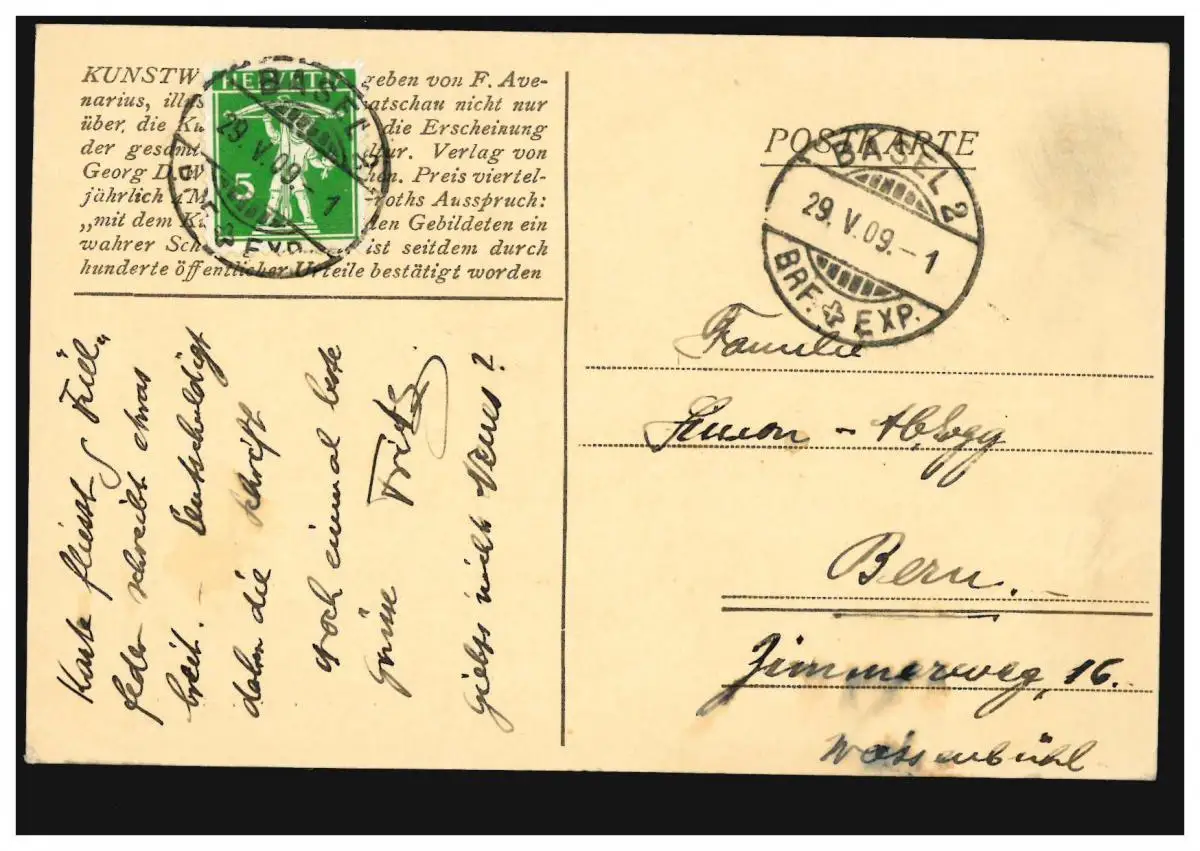 KUNSTW geben von F. Ave-
narius, illus atschau nicht nur
über die Ku die Erscheinung
der gesamt tur. Verlag von
Georg D.W hen. Preis viertel-
jährlich 4M roths Ausspruch:
„mit dem Ku den Gebildeten ein
wahrer Sch ist seitdem durch
hunderte öffentlicher Urteile bestätigt worden
HELVETIA
5
BASEL 2
29.V.09.-1
BRF. EXP.
POSTKARTE
BASEL 2
29.V.09.-1
BRF. EXP.
Karte fliesst
feder schreibt etwas
breit. - Entschuldigt
daher die Schrift
Noch einmal beste
Grüsse Fritz
Giebts nicht Neues?
Familie
Simon - Abegg
Bern.
Zimmerweg, 16.
Weissenbühl